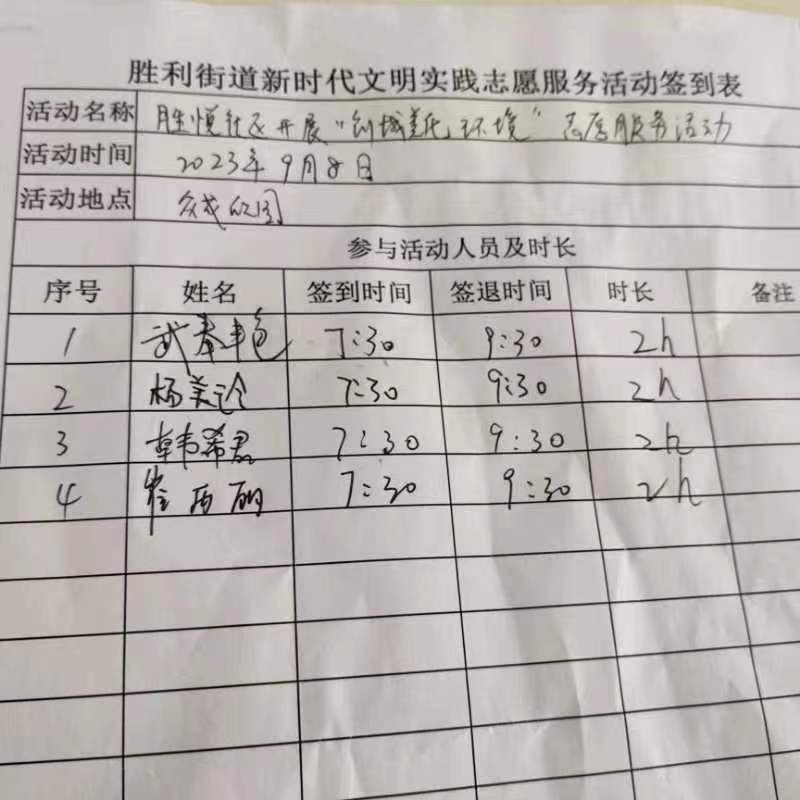 胜利街道新时代文明实践志愿服务活动签到表
活动名称 胜悦社区开展“创城美化环境”志愿服务活动
活动时间 2023年9月8日
活动地点
参与活动人员及时长
序号 姓名 签到时间 签退时间 时长 备注
1 武春艳 7:30 9:30 2h
2 杨美玲 7:30 9:30 2h
3 韩希君 7:30 9:30 2h
4 崔丽丽 7:30 9:30 2h